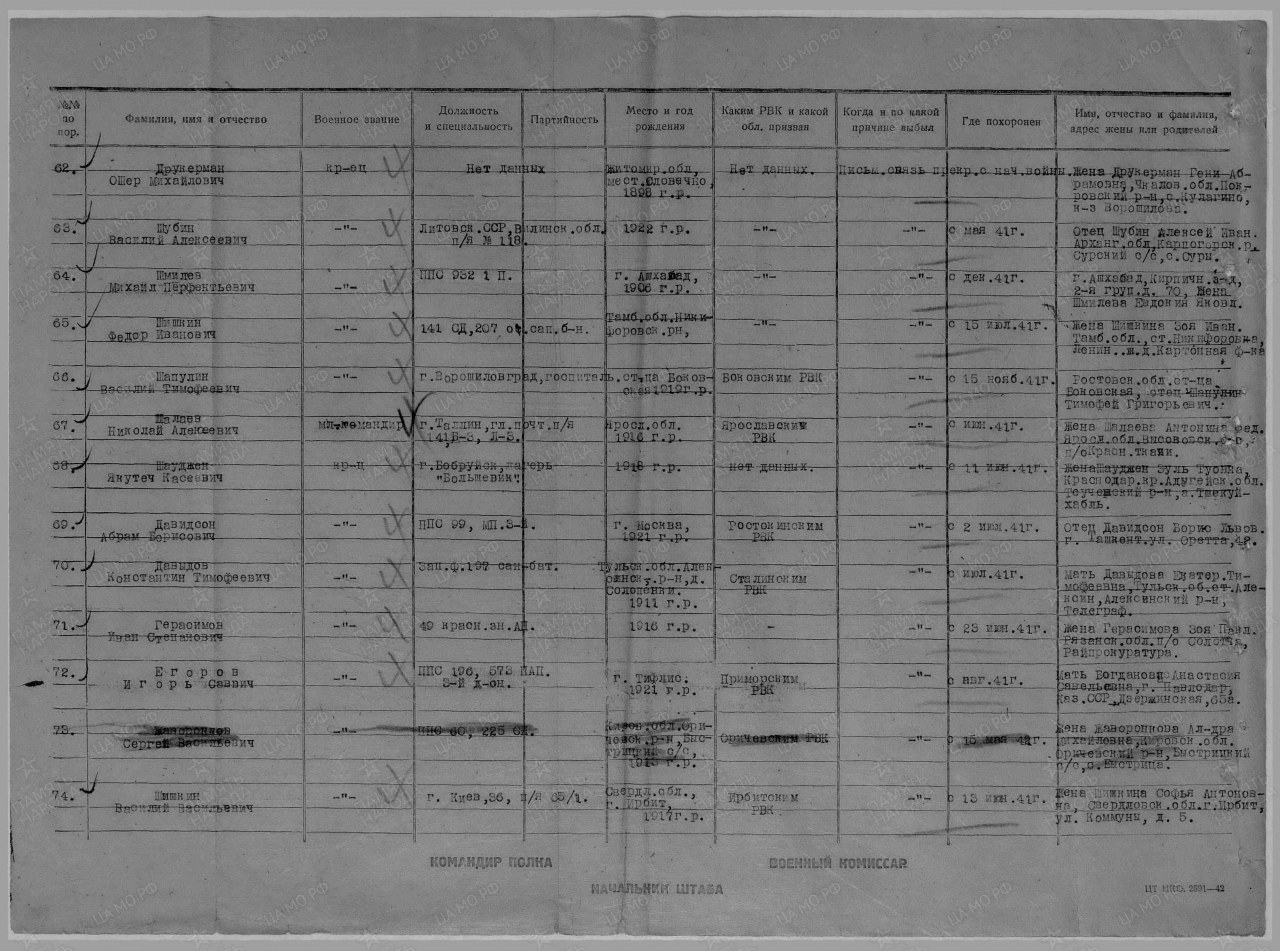 №№ по пор.
Фамилия, имя и отчество
Военное звание
Должность и специальность
Партийность
Место и год рождения
Каким РВК и какой обл. призван
Когда и по какой причине выбыл
Где похоронен
Имя, отчество и фамилия, адрес жены или родителей
62. Друкерман кр-ац Нет данных Житомир.обл, Нет данных. Письм.связь прекр.с нач.войны. Жена Друкерман Гени Аб-
Ошер Михайлович мест.Словечно, рамовна, Чкалов.обл.Пок-
1898 г.р. ровский р-н,с.Кулагино,
к-з Ворошилова.
63. Шубин -"- Литовск.ССР,Вилинск.обл. 1922 г.р. -"- -"- с мая 41г. Отец Шубин Алексей Иван.
Василий Алексеевич п/я № 118. Арханг.обл,Карпогорск.р.
Сурский с/с,с.Суры.
64. Шмилев ППС 932 1 П. г. Ашхабад, -"- -"- с дек.41г. г.Ашхабад,Кирпичн.з-д,
Михаил Перфектьевич -"- 1906 г.р. 2-я Груп.д. 70, Жена
Шмилева Евдокия Яковл.
65. Шишкин -"- 141 СД,207 от.сап.б-н. Тамб.обл.Ники- -"- -"- с 15 июл.41г. Жена Шишкина Зоя Иван.
Федор Иванович форовск.рн, Тамб.обл.,ст.Никифоровка,
Ленин..ж.д.Картонная ф-ка
66. Шапулин -"- г.Ворошиловград,госпиталь. ст-ца Боков- Боковским РВК -"- с 15 нояб.41г. Ростовск.обл.ст-ца
Василий Тимофеевич ская1919г.р. Боковская, отец Шапулин
Тимофей Григорьевич.
67. Шалаев мл.командир г.Таллин,гл.почт.п/я Яросл.обл. Ярославским -"- с июн.41г. Жена Шалаева Антонина Фед.
Николай Алексеевич 141,В-3, Л-3. 1916 г.р. РВК Яросл.обл. п/оКрасн.ткачи.
68. Шауджен кр-ц г.Бобруйск,лагерь 1918 г.р. нет данных. -"- с 11 июн.41г. ЖенаШауджен Зуль
Якутеч Касеевич "Большевик". Краснодар.кр.Адыгейск.обл.
Теучежский р-н,а.Тшекуй-
хабль.
69. Давидсон -"- ППС 99, МП.3-й. г. Москва, Ростокинским -"- с 2 июл.41г. Отец Давидсон Борис Львов.
Абрам Борисович 1921 г.р. РВК г. Ташкент.ул.
70. Давыдов -"- Зап.ф.197 сан-бат. Тульск.обл.Алек- Сталинским -"- с июл.41г. Мать Давыдова Екатер.Ти-
Константин Тимофеевич синск.р-н,д. РВК мофеевна,Тульск.об.ст.Але-
Солопенки. ксин,Алексинский р-н,
1911 г.р. Телеграф.
71. Герасимов -"- 49 красн.зн.АП. 1916 г.р. - -"- с 23 июн.41г. Жена Герасимова Зоя Павл.
Иван Степанович Рязанск.обл.п/о Солотча,
Райпрокуратура.
72. Егоров -"- ППС 196, 573 ПАП. г. Тифлис. Приморским -"- с авг.41г. Мать Богданович Анастасия
Игорь Саввич 3-й д-он. 1921 г.р. РВК Савельевна,г. Павлодар,
Каз.ССР,Дзержинская,65а.
73. Жаворонков -"- ППС 60, 225 СП. Киров.обл.Ори- Оричевским РВК -"- с 15 мая 41г. Жена Жаворонкова Ал-дра
Сергей Васильевич чевск.р-н,Быс- Михайловна,Кировск.обл.
трицкий с/с, Оричевский р-н,Быстрицкий
1913 г.р. с/с,с.Быстрица.
74. Шишкин -"- г. Киев,36, п/я 65/1. Свердл.обл., Ирбитским -"- с 13 июн.41г. Жена Шишкина Софья Антонов-
Василий Васильевич г.Ирбит, РВК на, Свердловск.обл.г.Ирбит,
1917г.р. ул. Коммуны, д. 5.
КОМАНДИР ПОЛКА
ВОЕННЫЙ КОМИССАР
НАЧАЛЬНИК ШТАБА
ЦТ НКО. 2591—42